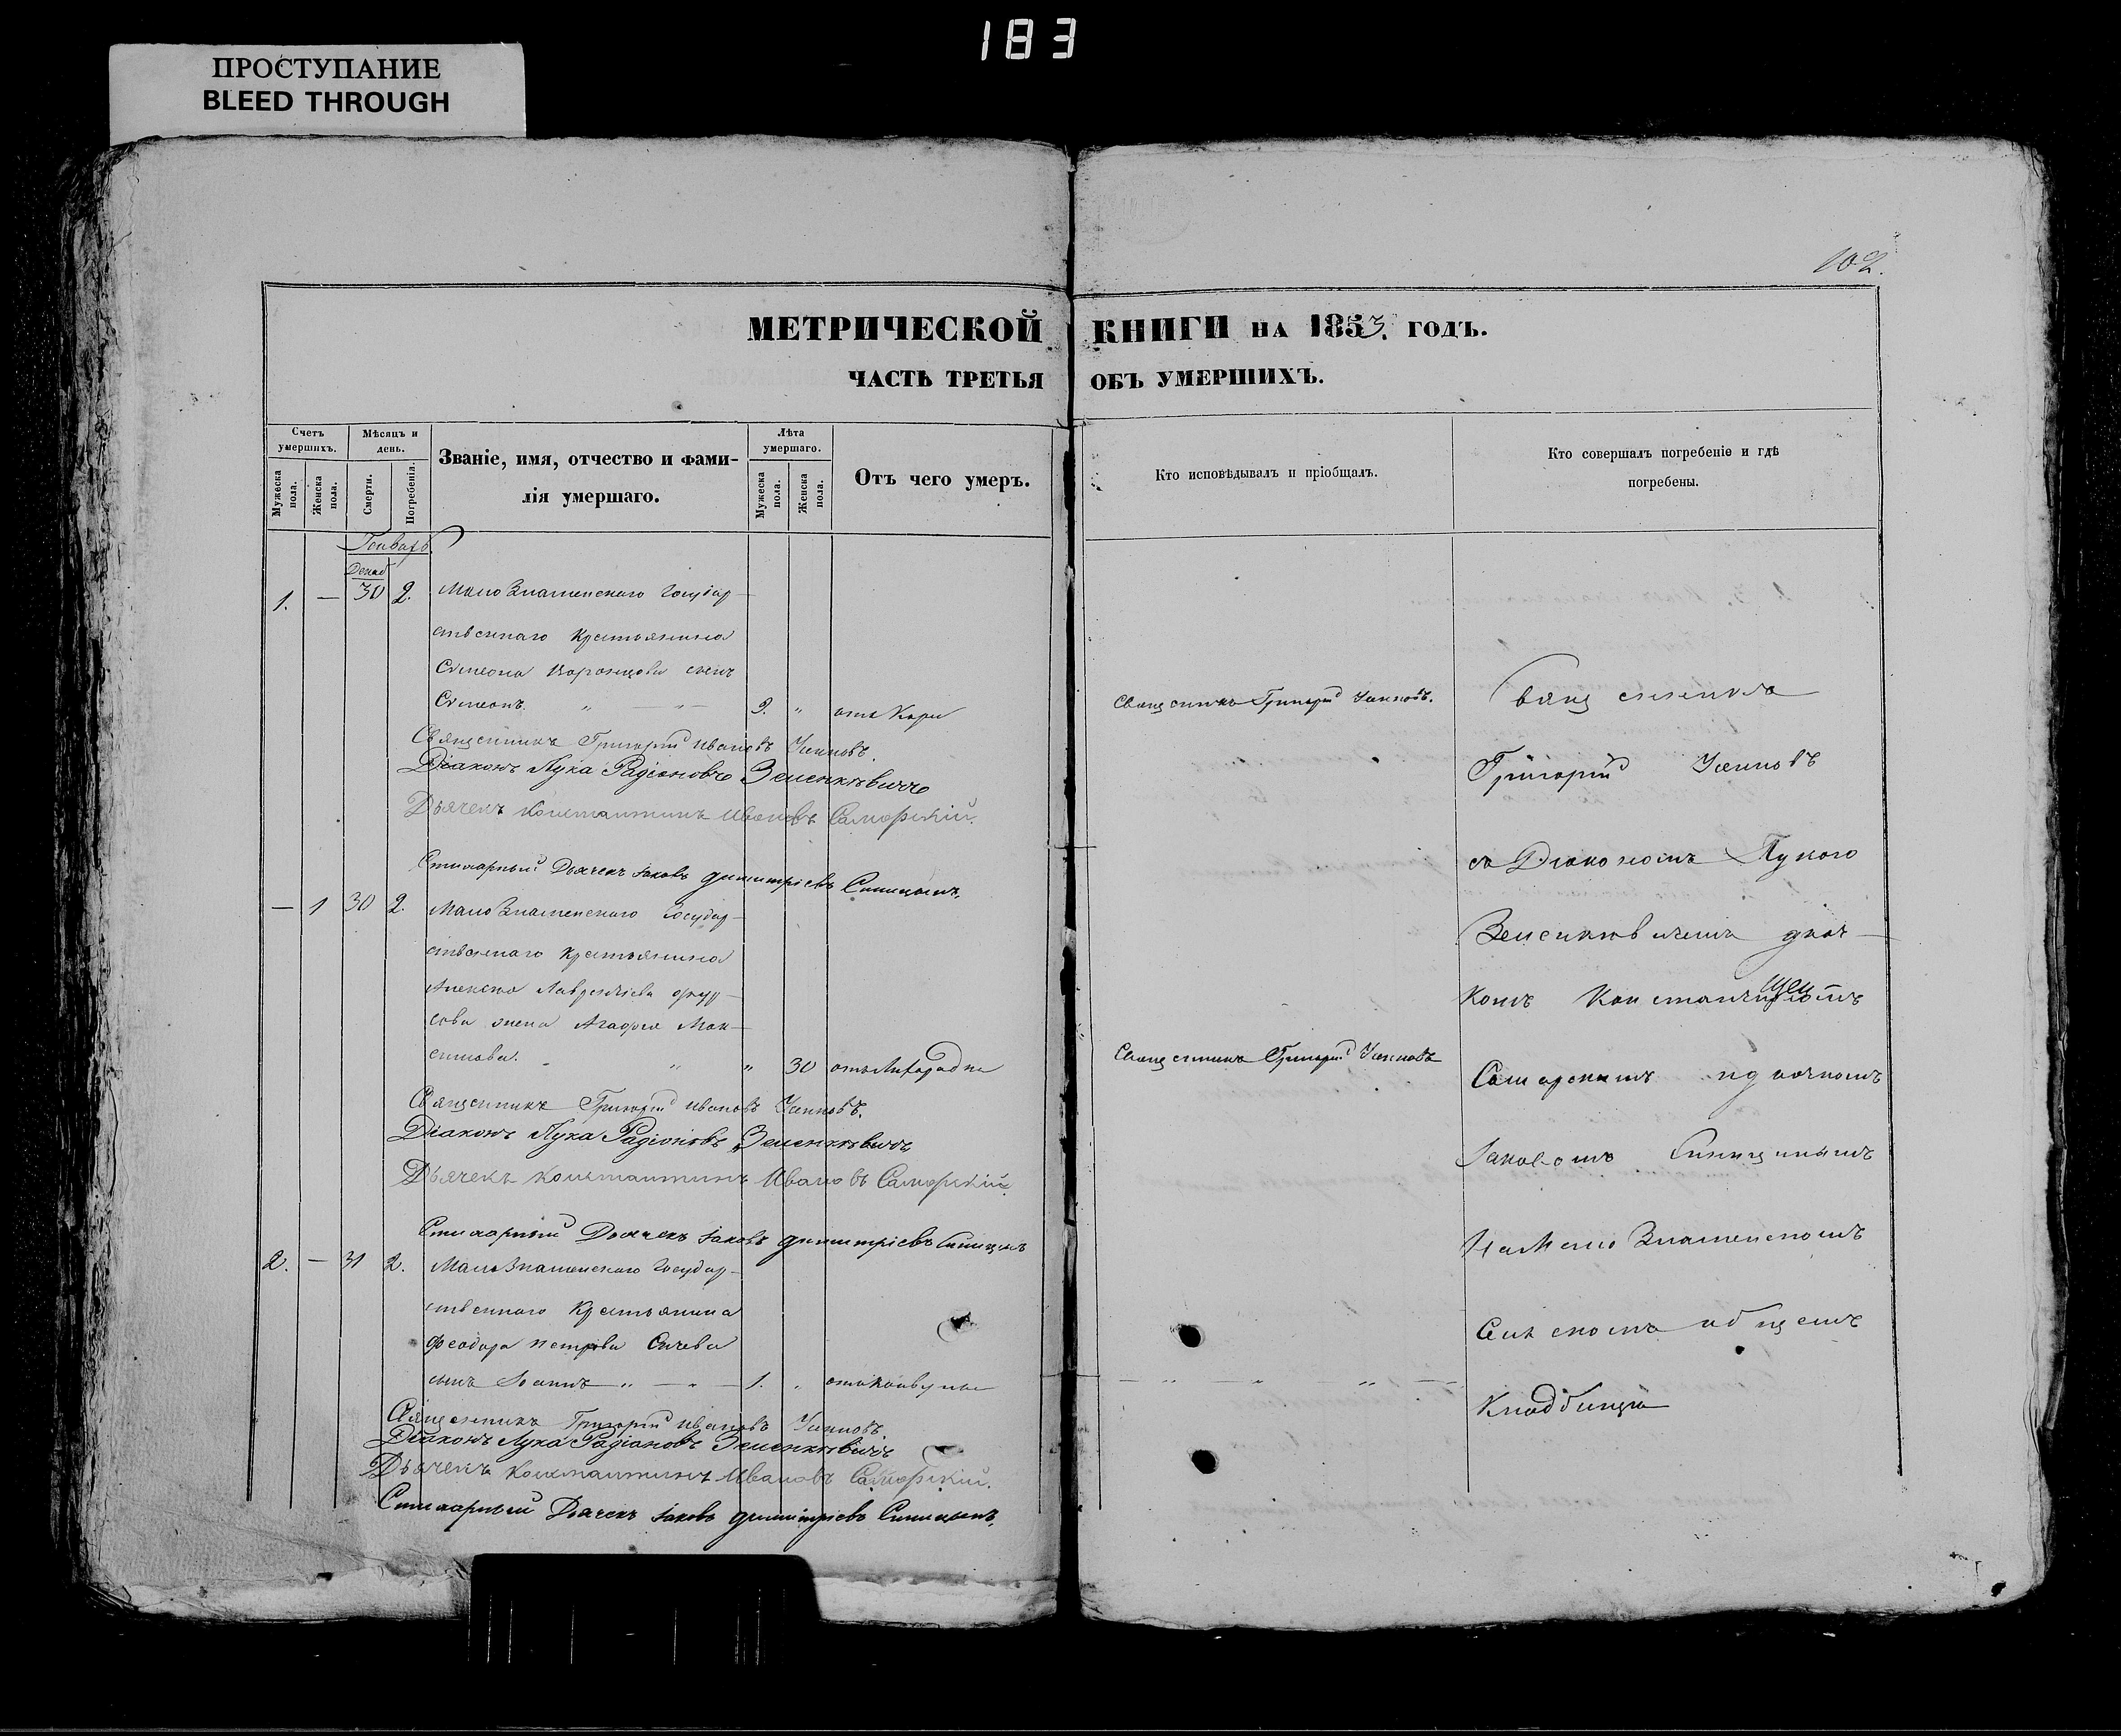 183
ПРОСТУПАНИЕ
BLEED THROUGH
102.
МЕТРИЧЕСКОЙ КНИГИ НА 1853. ГОДЪ.
ЧАСТЬ ТРЕТЬЯ ОБЪ УМЕРШИХЪ.
Счетъ умершихъ.
Мужеска пола.
Женска пола.
Мѣсяцъ и день.
Смерти.
Погребенія.
Званіе, имя, отчество и фами-
лія умершаго.
Лѣта умершаго.
Мужеска пола.
Женска пола.
Отъ чего умеръ.
Кто исповѣдывалъ и пріобщалъ.
Кто совершалъ погребеніе и гдѣ
погребены.
Генварь
Декаб
1. — 30 2. Мало Знаменскаго Государ-
ственнаго Крестьянина
Симеона Воронцова сынъ
Симеонъ. " — " — 9. " отъ Кори
Священникъ Григорій
Священникъ Григорій Ивановъ
Діаконъ Лука Радіоновъ Зеленкѣвичъ
Дьячекъ Константинъ Ивановъ Самарскій.
Стихарный Дьячекъ Іаковъ Димитріевъ Синицынъ.
— 1 30 2. Мало Знаменскаго Государ-
ственнаго Крестьянина
Алексѣя Лаврентіева
жена Агафія Мак-
симова. " " 30 отъ Лихорадки
Священникъ Григорій
Священникъ Григорій Ивановъ
Діаконъ Лука Радіоновъ Зеленкѣвичъ
Дьячекъ Константинъ Ивановъ Самарскій.
Стихарный Дьячекъ Іаковъ Димитріевъ Синицынъ
2. — 31 2. Мало Знаменскаго Государ-
ственнаго Крестьянина
Феодора Петрова Сычева
сынъ Іоаннъ " — " — 1. " отъ
Священникъ Григорій Ивановъ
Діаконъ Лука Радіоновъ Зеленкѣвичъ
Дьячекъ Константинъ Ивановъ Самарскій.
Стихарный Дьячекъ Іаковъ Димитріевъ Синицынъ.
Священникъ
Григорій
съ Діакономъ Лукою
Зеленкѣвичемъ дьяч-
комъ
Самарскимъ
Іаковомъ Синицынымъ
На Мало Знаменскомъ
Сельскомъ общемъ
Кладбищѣ